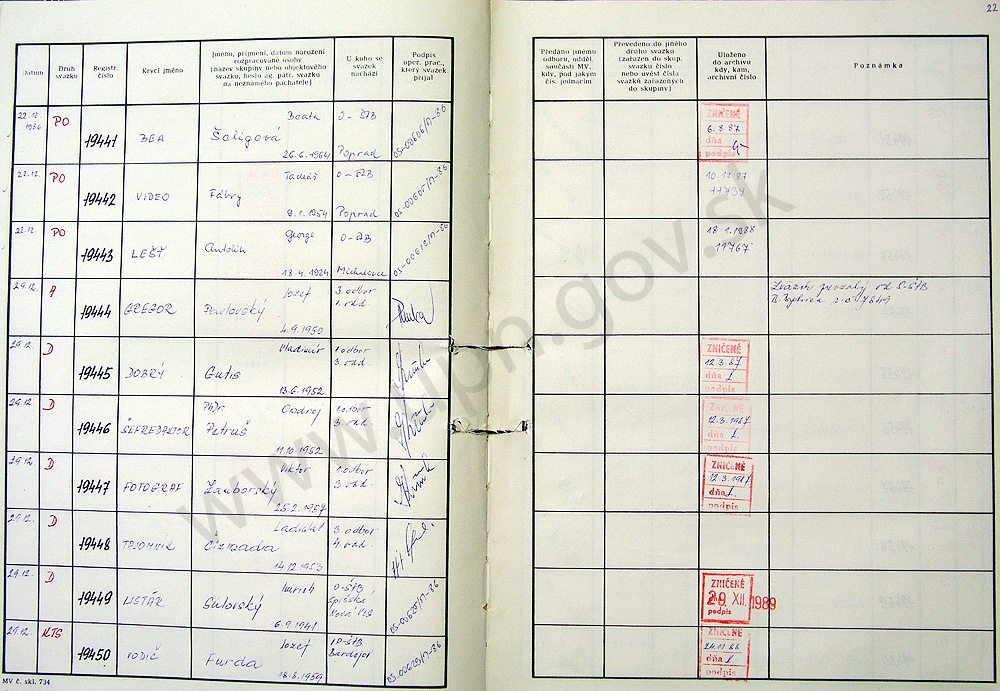 22
Datum
Druh svazku
Registr. číslo
Krycí jméno
Jméno, příjmení, datum narození
rozpracované osoby
(název skupiny nebo objektového
svazku, heslo ag. pátr. svazku
na neznámého pachatele)
U koho se
svazek
nachází
Podpis
oper. prac.,
který svazek
přijal
Předáno jinému
odboru, odděl.
součásti MV,
kdy, pod jakým
čís. jednacím
Převedeno do jiného
druhu svazku
(zařazen do skup.
svazku číslo
nebo uvést čísla
svazků zařazených
do skupiny)
Uloženo
do archivu
kdy, kam,
archivní číslo
Poznámka
22.12. 1986 PO 19441 BEA Šoligová Beata 26.6.1964 O-ŠtB Poprad OS-00606/M-86
ZNIČENÉ 6.8.87 dňa podpis
22.12. PO 19442 VIDEO Fábry 9.1.1954 O-ŠtB Poprad OS-00605/M-86
10.12.87
22.12. PO 19443 LEŠŤ Antolík George 18.4.1924 O-ŠtB Michalovce
18.1.1988
11767
29.12. A 19444 GREGOR Pavlovský Jozef 4.9.1950 3.odbor 1.odd.
29.12. D 19445 DOBRÝ Gutis Vladimír 13.6.1952 1.odbor 3.odd.
ZNIČENÉ 12.3.87 dňa podpis
29.12. D 19446 ŠÉFREDAKTOR PhDr Ondrej Petruš 11.10.1952 1.odbor 3.odd.
ZNIČENÉ 12.3.1987 dňa podpis
29.12. D 19447 FOTOGRAF Viktor Zamborský 25.2.1957 1.odbor 3.odd.
ZNIČENÉ 12.3.1987 dňa podpis
29.12. D 19448 TAJOMNÍK Ladislav Čizmadia 14.12.1953 3.odbor 4.odd.
29.12. D 19449 LISTÁR Imrich Súlovský 6.9.1941 O-ŠtB Spišská Nová Ves OS-00625/M-86
ZNIČENÉ 29. XII. 1989 podpis
29.12. NTS 19450 VODIČ Jozef Furda 18.8.1959 Bardejov OS-00629/M-86
ZNIČENÉ 24.11.88 dňa podpis
MV č. skl. 734
www.upn.gov.sk